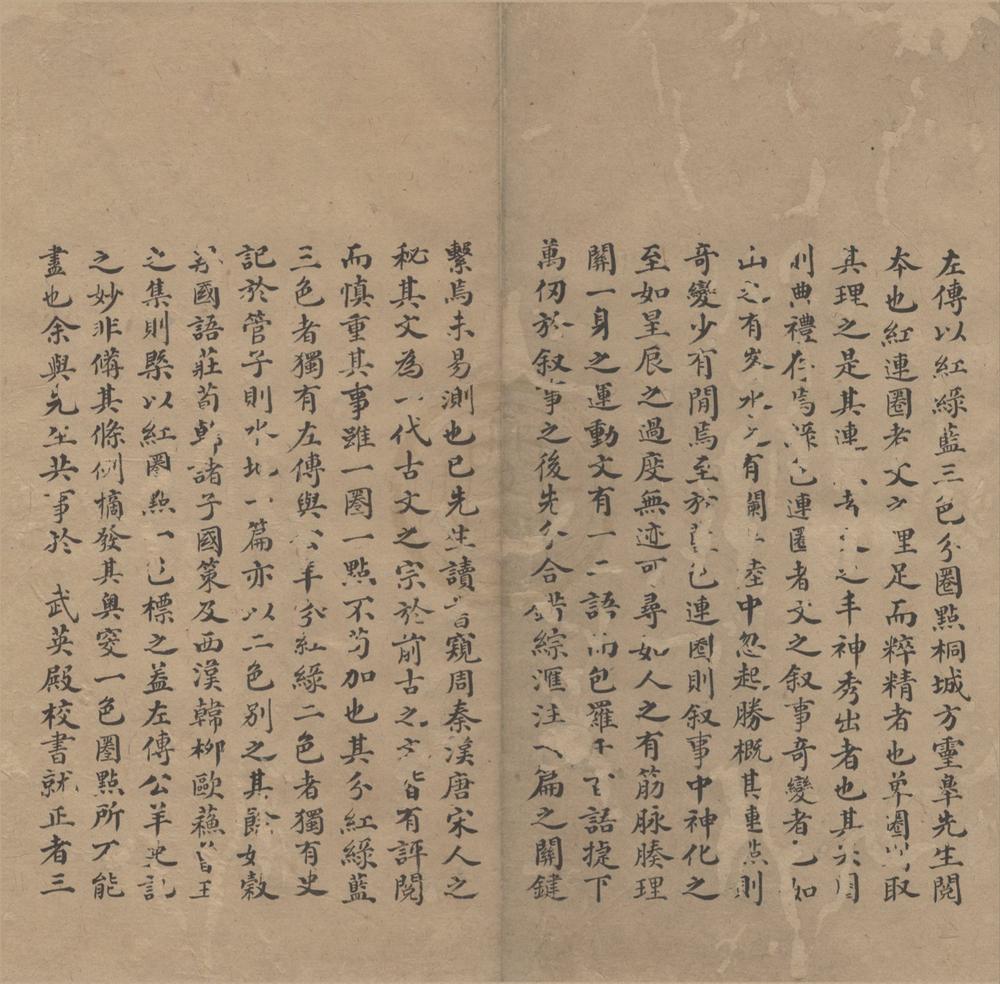 左傳以紅綠藍三色分圈點桐城方靈皋先生閱
本也紅連圈者文之理足而粹精者也單圈則取
其理之是其連之丰神秀出者也其
則典禮存焉綠色連圈者文之敘事奇變者也如
山之有水之有闌中忽起勝概其連點則
奇變少有閒焉至於藍色連圈則叙事中神化之
至如星辰之過度無迹可尋如人之有筋脉腠理
關一身之運動文有一二語而包羅千百語捷下
萬仞於叙事之後先分合錯綜滙注一篇之關鍵
繫焉未易測也已先生讀書窺周秦漢唐宋人之
秘其文為一代古文之宗於前古之文皆有評閱
而慎重其事雖一圈一點不苟加也其分紅綠藍
三色者獨有左傳與公羊分紅綠二色者獨有史
記於管子則水地一篇亦以二色別之其餘如穀
梁國語莊荀韓諸子國策及西漢韓柳歐蘓曾王
之集則槩以紅圈點一色標之益左傳公羊史記
之妙非備其條例摘發其奧窔一色圈點所不能
盡也余與先生共事於 武英殿校書就正者三